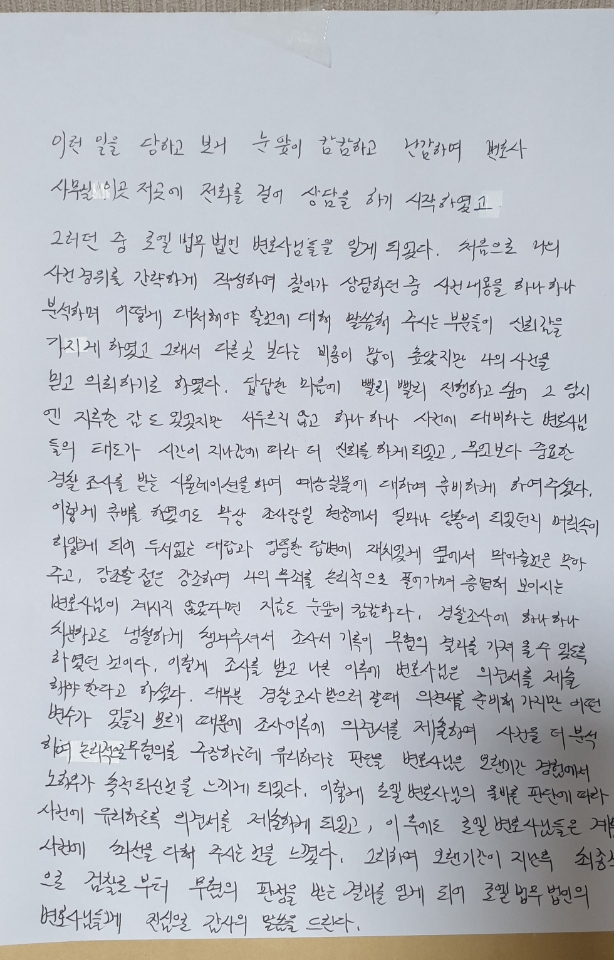 이런 일을 당하고 보니 눈 앞이 캄캄하고 난감하며 변호사
사무실 이곳 저곳에 전화를 걸어 상담을 하기 시작하였고
그러던 중 로엘 법무 법인 변호사님들을 알게 되었다. 처음으로 나의
사건경위를 간략하게 작성하여 찾아가 상담하던 중 사건내용을 하나 하나
분석하며 어떻게 대처해야 할것에 대해 말씀해 주시는 부분들이 신뢰감을
가지게 하였고 그래서 다른곳 보다는 비용이 많이 높았지만 나의 사건을
믿고 의뢰하기로 하였다. 답답한 마음에 빨리 빨리 진행하고 싶어 그 당시
엔 지루한 감도 있었지만 서두르지 않고 하나 하나 사건에 대비하는 변호사님
들의 태도가 시간이 지나감에 따라 더 신뢰를 하게되었고, 무엇보다 중요한
경찰 조사를 받는 시뮬레이션을 하며 예상질문에 대하여 준비하게 하여주셨다.
이렇게 준비를 하였어도 막상 조사당일 현장에서 얼마나 당황이 되었던지 머릿속이
하얗게 되어 두서없는 대답과 엉뚱한 답변에 재치있게 옆에서 막아줄것은 막아
주고, 강조할 점은 강조하여 나의 무죄를 논리적으로 풀어가며 증명해 보이시는
변호사님이 계시지 않았다면 지금도 눈앞이 캄캄하다. 경찰조사에 하나하나
차분하고도 냉철하게 챙겨주셔서 조사서 기록이 무혐의 결과를 가져 올 수 있도록
하였던 것이다. 이렇게 조사를 받고 나온 이후에 변호사님은 의견서를 제출
해야 한다고 하셨다. 대부분 경찰조사 받으러 갈때 의견서를 준비해 가지만 어떤
변수가 있을지 모르기 때문에 조사이후에 의견서를 제출하여 사건을 더 분석
하여 논리적으로 무혐의를 주장하는데 유리하다는 판단을 변호사님은 오랜기간 경험에서
노하우가 축적되신것을 느끼게 되었다. 이렇게 로엘 변호사님의 올바른 판단에 따라
사건에 유리하도록 의견서를 제출하게 되었고, 이후에도 로엘 변호사님들은 계속
사건에 최선을 다해 주시는 것을 느꼈다. 그리하여 오랜기간이 지난후 최종적
으로 검찰로 부터 무혐의 판정을 받는 결과를 얻게 되어 로엘 법무 법인의
변호사님들께 진심으로 감사의 말씀을 드린다.